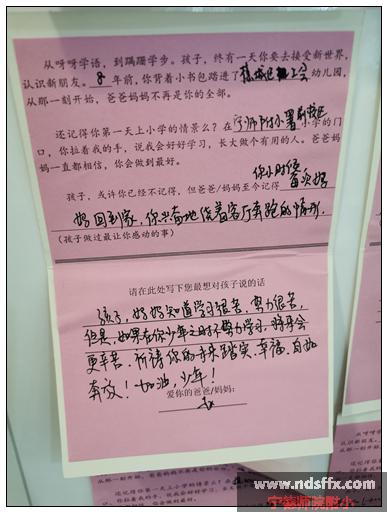 从呀呀学语，到蹒跚学步。孩子，终有一天你要去接受新世界，
认识新朋友。8 年前，你背着小书包踏进了蕉城区机工会幼儿园，
从那一刻开始，爸爸妈妈不再是你的全部。
还记得你第一天上小学的情景么？在宁师附小署前校区小学的门
口，你拉着我的手，说我会好好学习，长大做个有用的人。爸爸妈
妈一直都相信，你会做到最好。
孩子，或许你已经不记得，但爸爸/妈妈至今记得你小时候
妈回到家，你兴奋地绕着客厅奔跑的情形.
(孩子做过最让你感动的事)
请在此处写下您最想对孩子说的话
孩子，妈妈知道学习很苦，努力很苦，
但是，如果在你少年之时不努力学习，将来会
更辛苦。祈祷你的未来踏实、幸福、自如
奔放！加油，少年！
爱你的爸爸/妈妈：
www.ndsffx.com
宁德师院附小